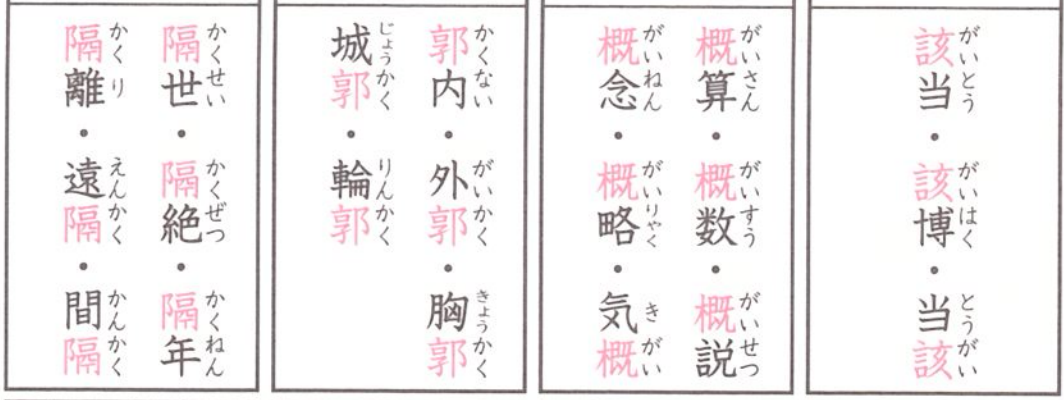 該当・該博・当該
概算・概数・概説
概念・概略・気概
郭内・外郭・胸郭
城郭・輪郭
隔世・隔絶・隔年
隔離・遠隔・間隔
がいとう がいはく とうがい
がいさん がいすう がいせつ
がいねん がいりゃく きがい
かくない がいかく きょうかく
じょうかく りんかく
かくせい かくぜつ かくねん
かくり えんかく かんかく